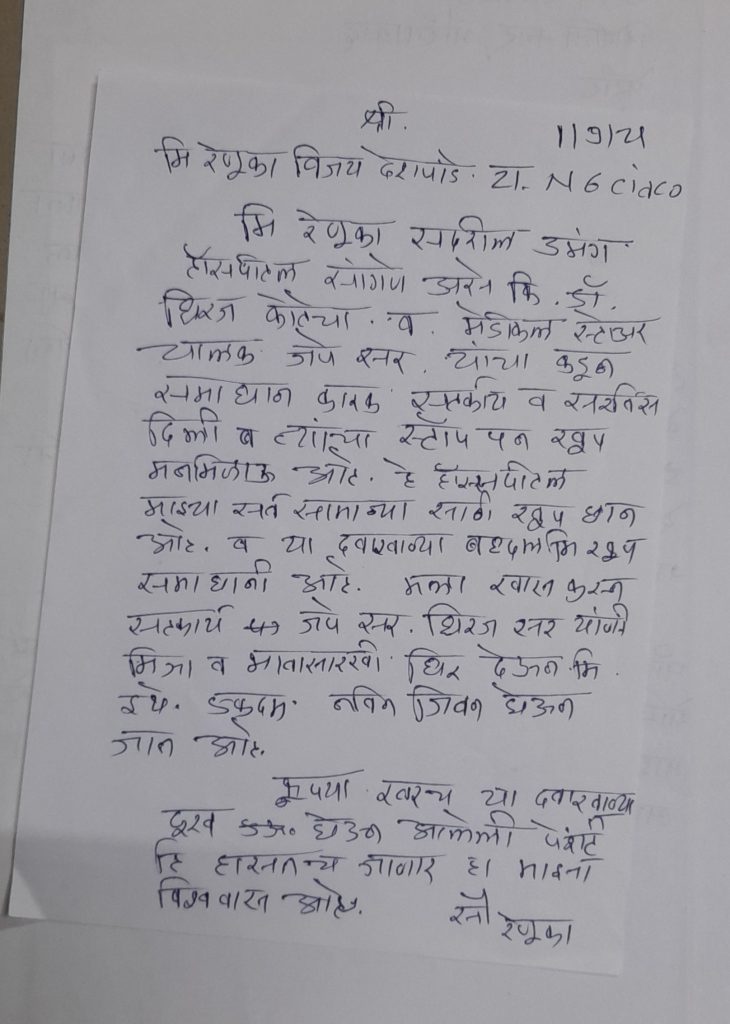 श्री.
1।9।24
मि रेणूका विजय देशपांडे. रा. N 6 Cidco
मि रेणूका सदरील उमंग
हॉसपीटल सांगेण असेन कि. डॉ.
धिरज कोटेचा. व. मेडीकल स्टोअर
चालक जेपे सर. यांचा कडून
समाधान कारक व सरविस
दिली व त्यांच्या स्टॉप पन खूप
मनमिळाऊ आहे. हे हॉस्सपीटल
माझ्या सर्व सामान्या साठी खूप छान
आहे. व या दवाखान्या बद्दल मि खूप
समाधानी आहे. मला खास करून
सत्कार्य जेपे सर. धिरज सर यांणी
मित्रा व भावासारखी धिर देऊन मि.
इथे. एकदम. नविन जिवन घेऊन
जात आहे.
कृपया खरच या दवाखान्या
दूख घेउन आलेली पेशंट
हि हासतच जानार हा माझा
विश्वास आहे.
सौ रेणूका